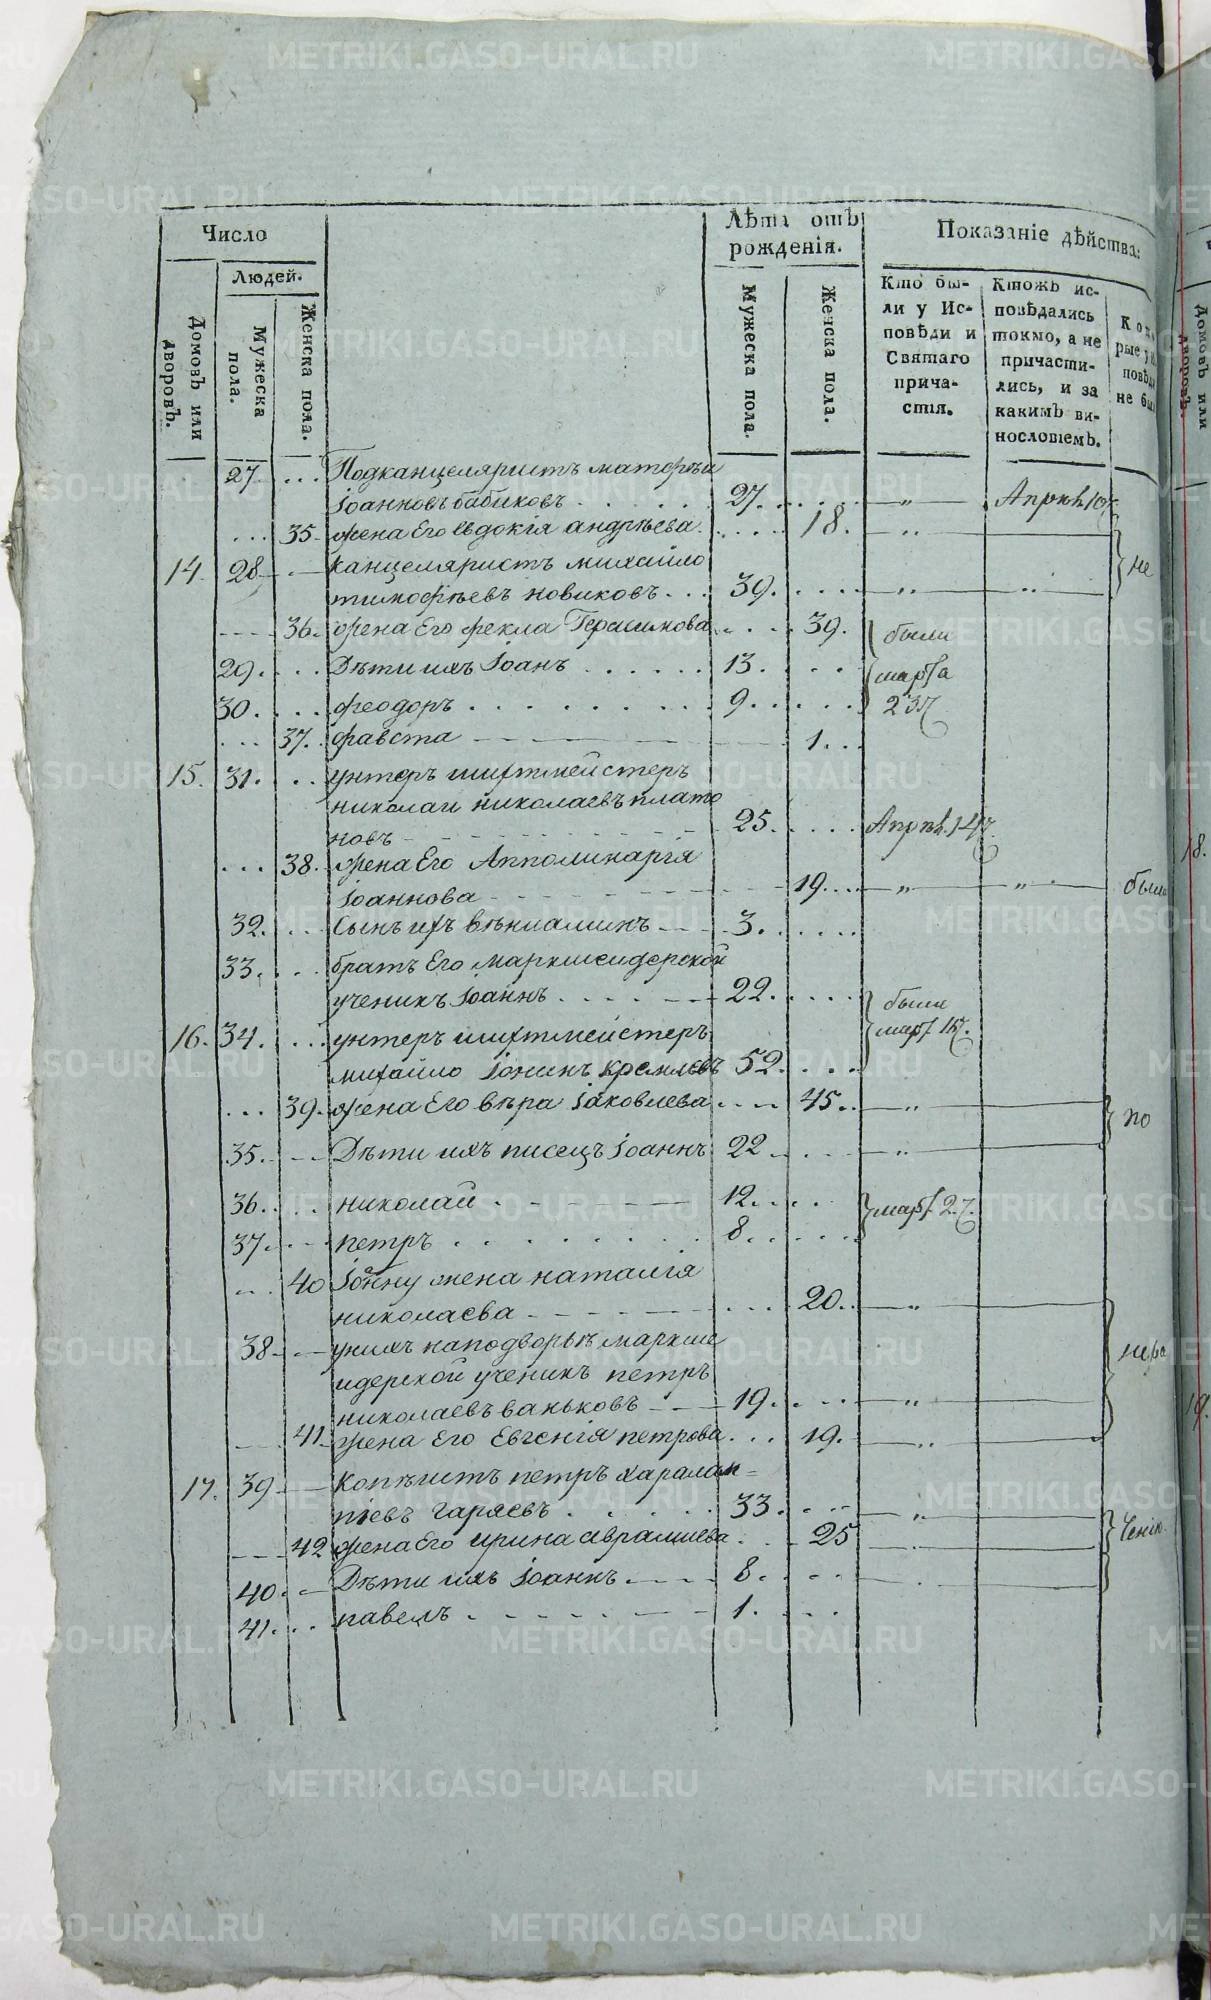 Число
Лѣта отъ
рожденія.
Показаніе дѣйства:
Людей.
Домовъ или
дворовъ.
Мужеска
пола.
Женска пола.
Мужеска пола.
Женска пола.
Кто бы-
ли у Ис-
повѣди и
Святаго
прича-
стія.
Ктожъ ис-
повѣдались
токмо, а не
причасти-
лись, и за
какимъ ви-
нословіемъ.
Домовъ или
дворовъ.
27. Подканцеляристъ матфѣи
Іоанновъ бабиковъ 27. „
35. жена Его Евдокія андрѣева 18. „
14. 28 канцеляристъ михайло
тимофѣевъ новиковъ 39. „ „ не
36. жена Его фекла Герасимова 39. были
29. Дѣти ихъ Іоанъ 13. марта
30. феодоръ 9. 23
37. фавста 1.
15. 31. унтеръ шихтмейстеръ
николаи николаевъ плато
новъ 25.
38. жена Его Апполинарія
Іоаннова 19. „ „ были
32. Сынъ ихъ вѣниаминъ 3.
33. братъ Его маркшейдерской
ученикъ Іоаннъ 22. были
16. 34. унтеръ шихтмейстеръ
михайло Іонинъ кремлевъ 52.
39. жена Его вѣра Іаковлева 45. „ по
35. Дѣти ихъ писецъ Іоаннъ 22 „
36. николай 12.
37. петръ 8.
40 Іоанну жена наталія
николаева 20. „
38 унихъ наподворьѣ маркше
идерской ученикъ петръ
николаевъ ваньковъ 19. „
41. жена Его Евгенія петрова 19. „
17. 39 Копѣистъ петръ харалам=
піевъ гаряевъ 33. „
42 жена Его ирина аврамиева 25
40. Дѣти ихъ Іоаннъ 8.
41. павелъ 1.
18.
19.
METRIKI.GASO-URAL.RU